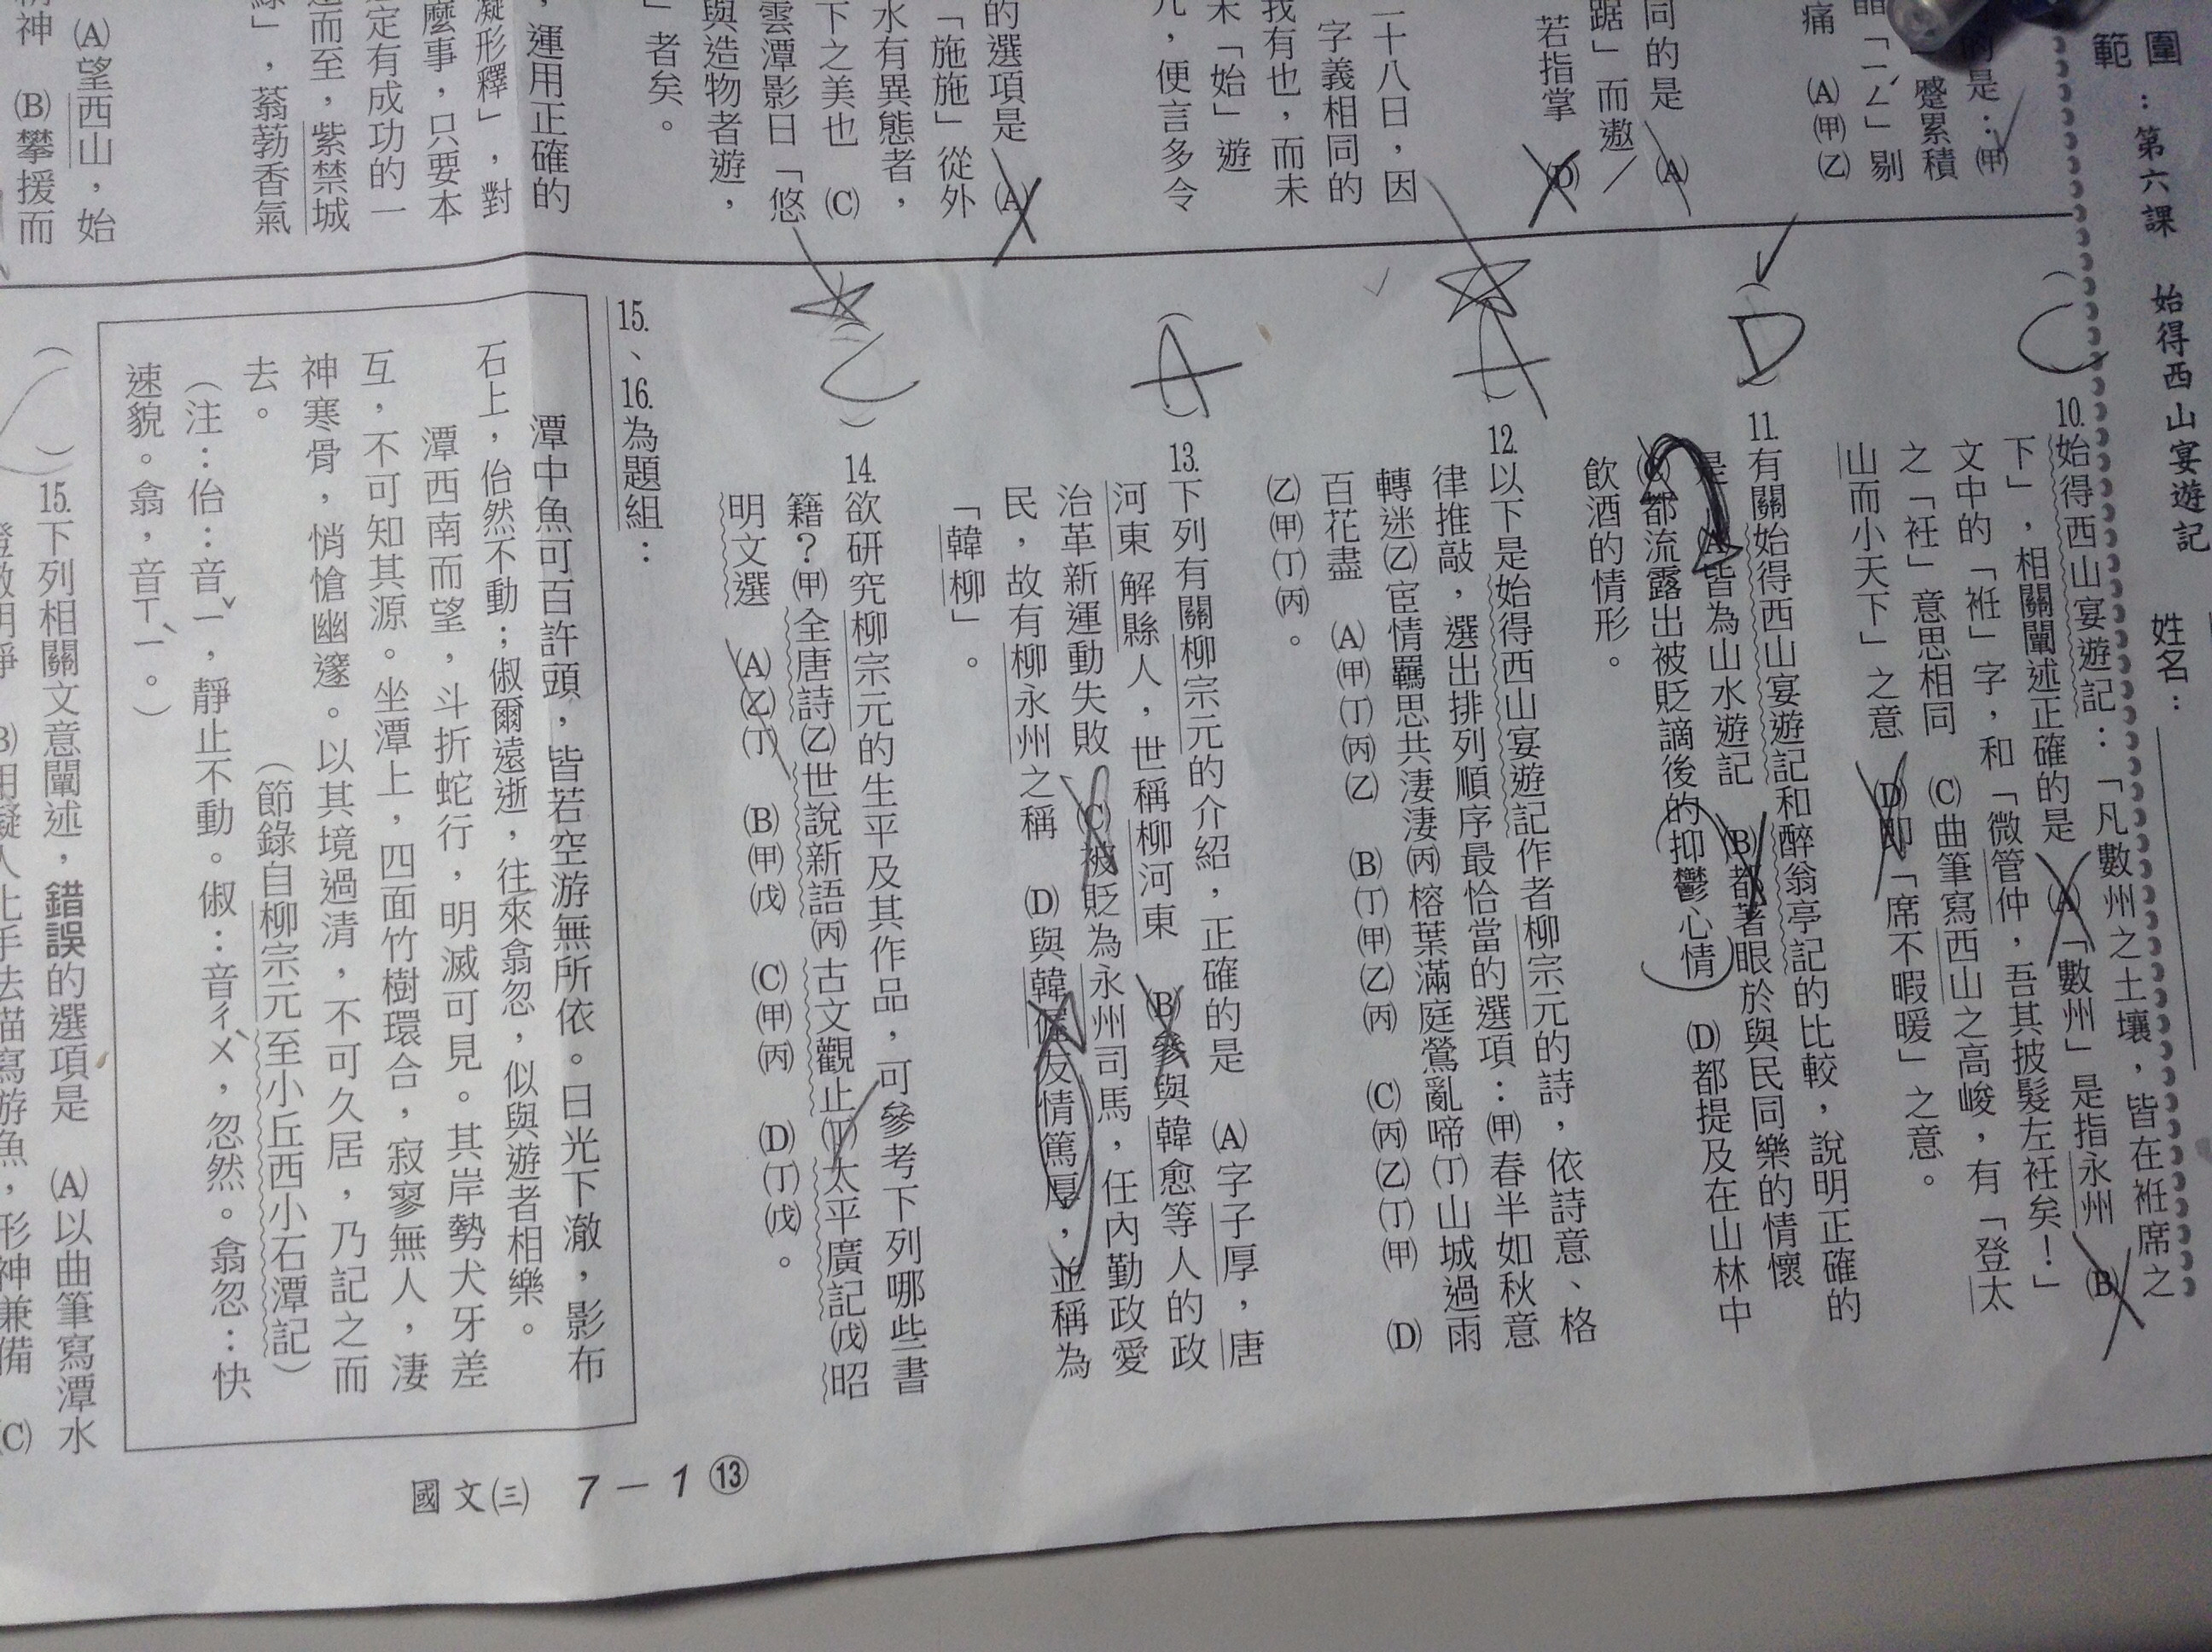 範圍:第六課 始得西山宴遊記 姓名:
的是:㈙
蹙累積
「ㄧㄥˊ」剔
痛 (A)㈙㈚
同的是 (A)
踞」而遨/
若指掌 (D)
二十八日,因
字義相同的
找有也,而未
未「始」遊
,便言多令
的選項是 (A)
「施施」從外
水有異態者,
下之美也 (C)
雲潭影日「悠
與造物者遊,
」者矣。
,運用正確的
凝形釋」,對
麼事,只要本
定有成功的一
而至,紫禁城
」,蓊勃香氣
(A)望西山,始
神 (B)攀援而
(C)10.始得西山宴遊記:「凡數州之土壤,皆在衽席之
下」,相關闡述正確的是 (A)「數州」是指永州 (B)
文中的「衽」字,和「微管仲,吾其披髮左衽矣!」
之「衽」意思相同 (C)曲筆寫西山之高峻,有「登太
山而小天下」之意 (D)即「席不暇暖」之意。
(D)11.有關始得西山宴遊記和醉翁亭記的比較,說明正確的
是 (A)皆為山水遊記 (B)都著眼於與民同樂的情懷
(C)都流露出被貶謫後的抑鬱心情 (D)都提及在山林中
飲酒的情形。
(A)12.以下是始得西山宴遊記作者柳宗元的詩,依詩意、格
律推敲,選出排列順序最恰當的選項:㈙春半如秋意
轉迷㈚宦情羈思共淒淒㈛榕葉滿庭鶯亂啼㈜山城過雨
百花盡 (A)㈙㈜㈛㈚ (B)㈜㈙㈚㈛ (C)㈛㈚㈜㈙ (D)
㈚㈙㈜㈛。
(A)13.下列有關柳宗元的介紹,正確的是 (A)字子厚,唐
河東 解縣人,世稱柳河東 (B)參與韓愈等人的政
治革新運動失敗 (C)被貶為永州司馬,任內勤政愛
民,故有柳永州之稱 (D)與韓偓友情篤厚,並稱為
「韓柳」。
(C)14.欲研究柳宗元的生平及其作品,可參考下列哪些書
籍?㈙全唐詩㈚世說新語㈛古文觀止㈜太平廣記㈝昭
明文選 (A)㈚㈜ (B)㈙㈝ (C)㈙㈛ (D)㈜㈝。
15.、16.為題組:
潭中魚可百許頭,皆若空游無所依。日光下澈,影布
石上,佁然不動;俶爾遠逝,往來翕忽,似與遊者相樂。
潭西南而望,斗折蛇行,明滅可見。其岸勢犬牙差
互,不可知其源。坐潭上,四面竹樹環合,寂寥無人,淒
神寒骨,悄愴幽邃。以其境過清,不可久居,乃記之而
去。 (節錄自柳宗元 至小丘西小石潭記)
(注:佁:音ㄧˇ,靜止不動。俶:音ㄔㄨˋ,忽然。翕忽:快
速貌。翕,音ㄒㄧˋ。)
( )15.下列相關文意闡述,錯誤的選項是 (A)以曲筆寫潭水
(B)用擬人化手法描寫游魚,形神兼備 (C)
國文㈢ 7-1 ⑬